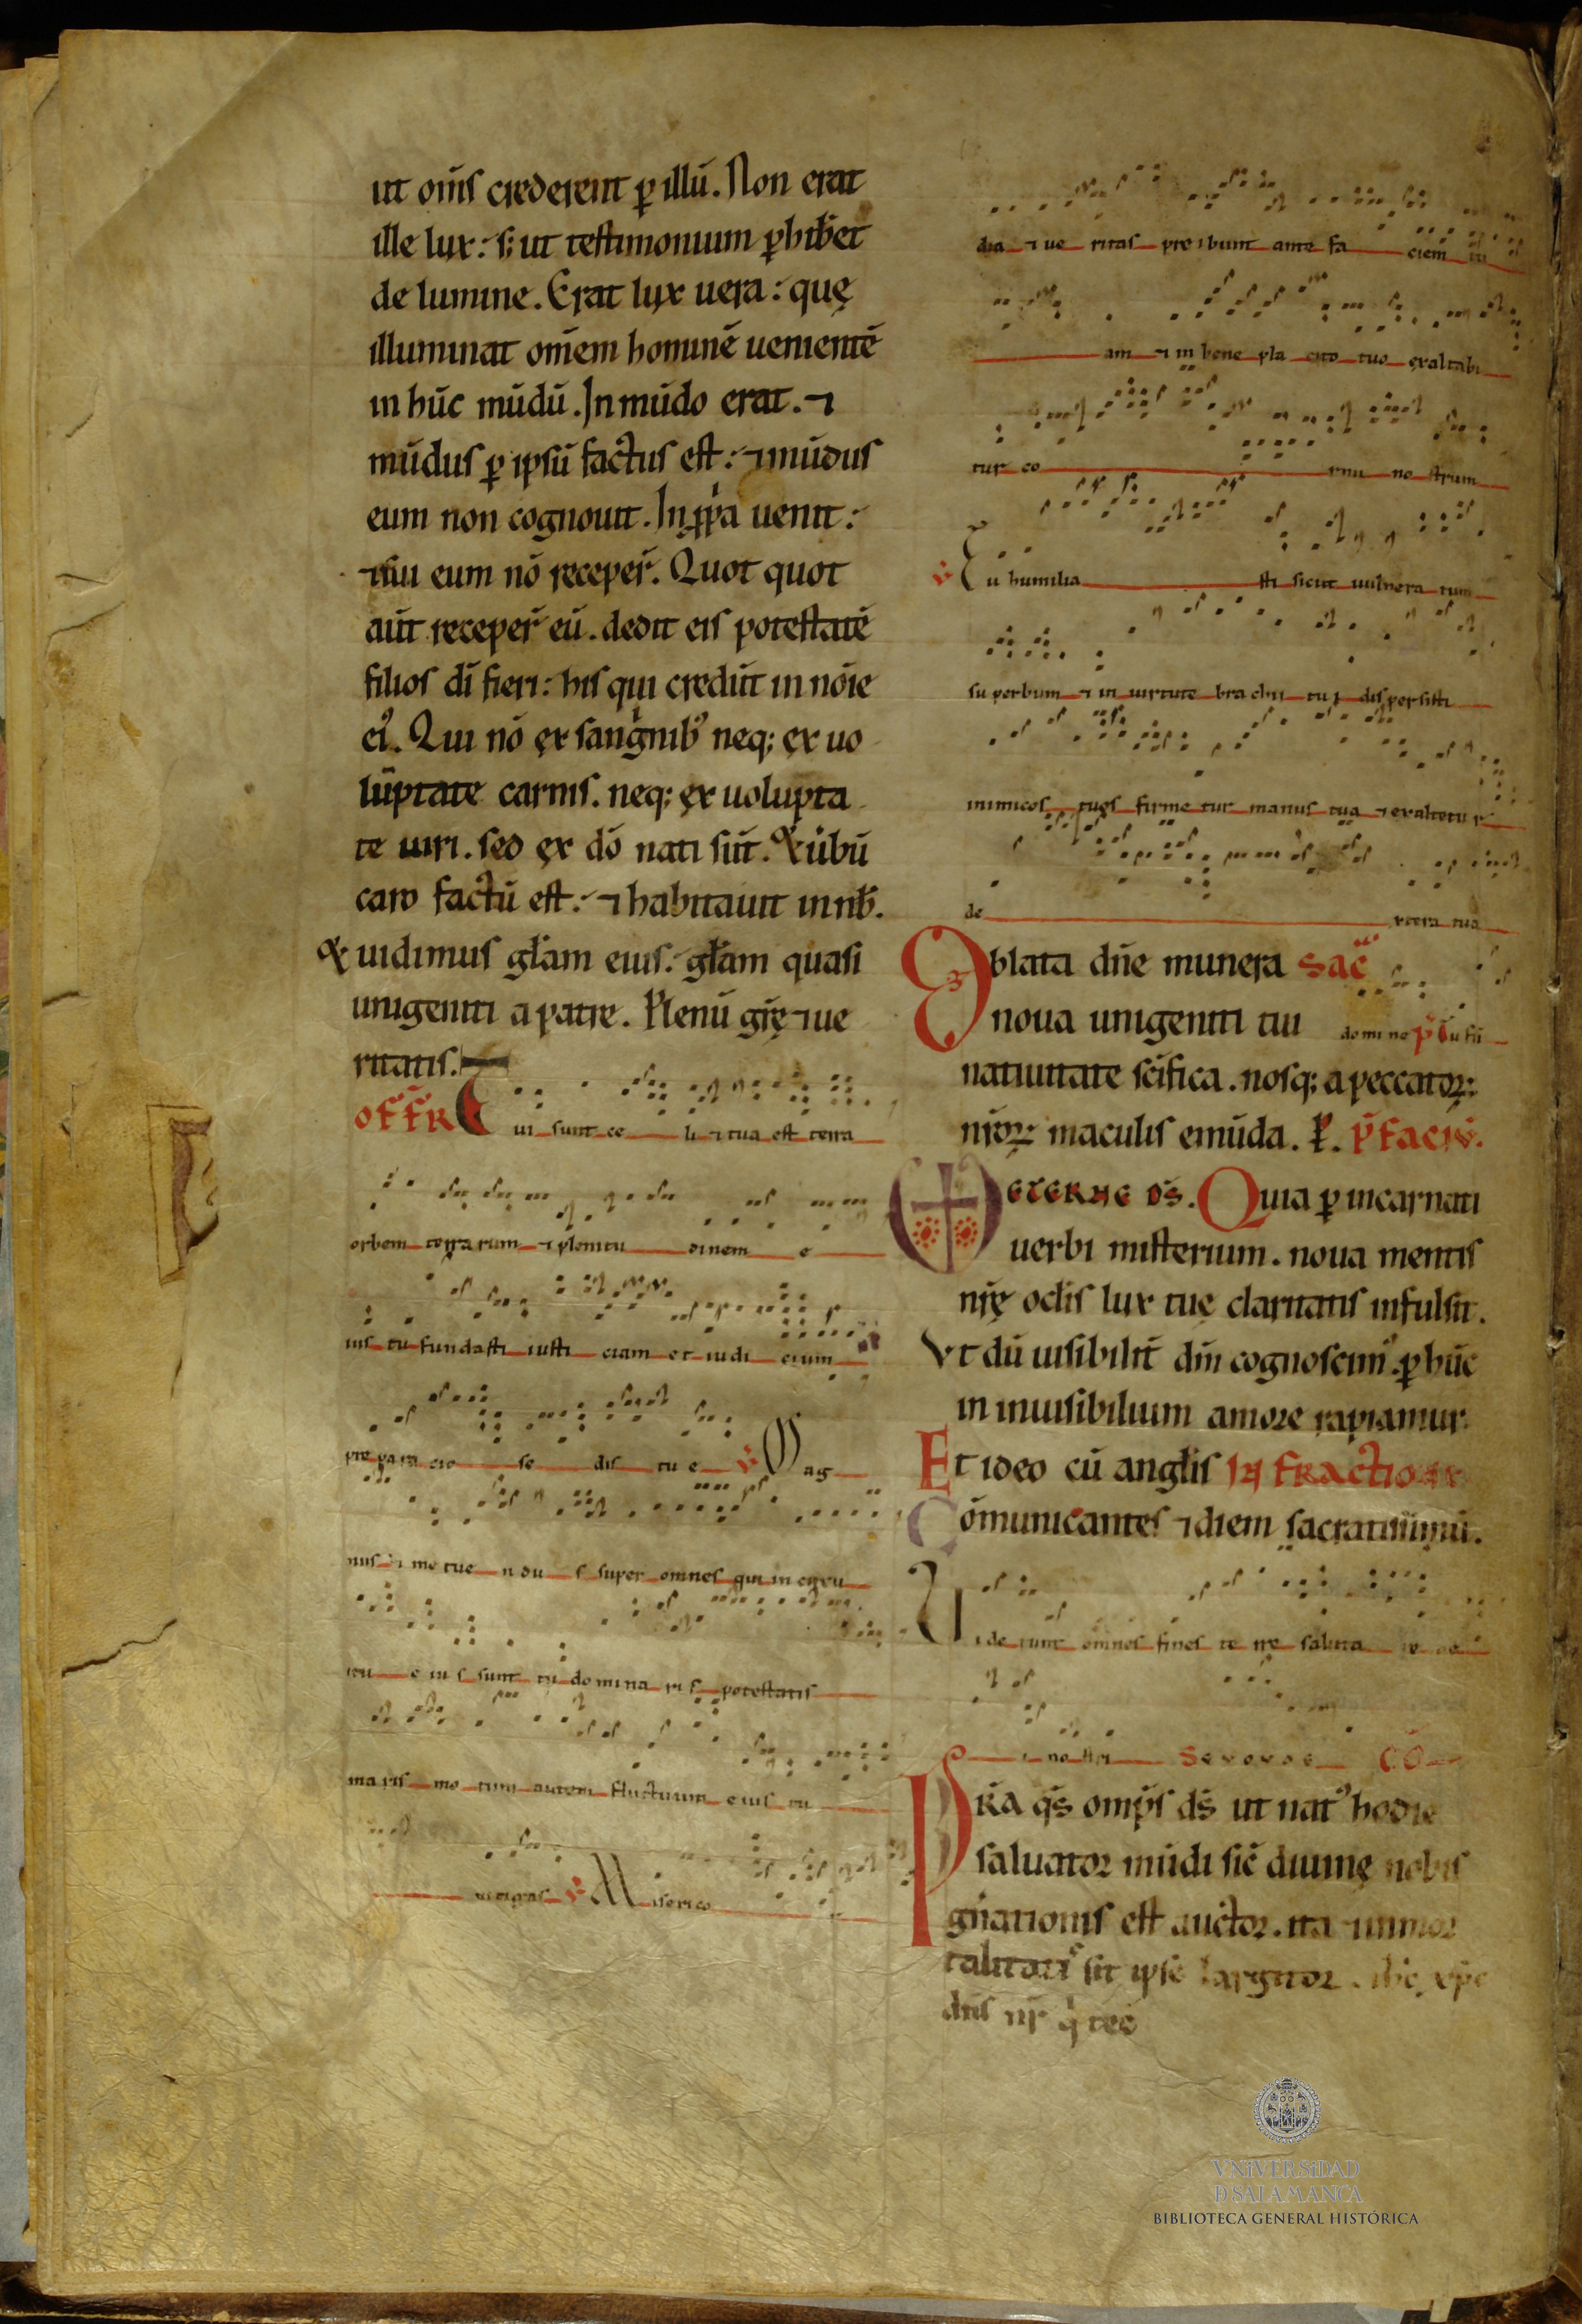 ut om̅s crederent ꝑ illu̅. Non erat
ille lux: s; ut testimonium ꝑhib̅et
de lumine. Erat lux uera: quę
illuminat om̅em homine̅ueniente̅
in hu̅c mu̅du̅. In mu̅do erat. ⁊
mu̅dus ꝑ ipsu̅ factus est: ⁊ mu̅dus
eum non cognouit. In ꝓp̅a uenit:
⁊ sui eum no̅ receper̅. Quot quot
au̅t receper̅ eu̅. dedit eis potestate̅
filios di̅ fieri: his qui credu̅t in no̅ie
ei᷒. Qui no̅ ex sang̅nib᷒ neq; ex uo
lu̅ptate carnis. neq; ex uolupta
te uiri. sed ex do̅ nati su̅t. & u̅bu̅
caro factu̅ est: ⁊ habitauit in nob̅.
& uidimus gl̅am eius. gl̅am quasi
unigeniti a patre. Plenu̅ gr̅ę ⁊ ue
ritatis.
OFFR Tui sunt ce li ⁊ tua est terra
orbem terrarum ⁊ plenitu dinem e
ius tu fundasti iusti ciam et iudi cium
prepara cio se dis tu e ℣ Mag
nus ⁊ me tue n du s super omnes qui in circu
itu e iu s sunt tu do mina ri s potestatis
maris mo tum autem fluctuum eius tu
mitigas ℣ Miserico
dia ⁊ ue ritas pre ibunt ante fa ciem tu
am ⁊ in bene pla cito tuo exaltabi
tur co rnu no strum
℣ Tu humilia sti sicut uulnera tum
su perbum ⁊ in uirtute bra chii tu i dispersisti
inimicos tuos firme tur manus tua ⁊ exaltetu r
de xtera tua
Oblata dn̅e munera sac̅
noua unigeniti tui
natiuitate sc̅ifica. nosq; a peccatoꝝ
nr̅oꝝ maculis emu̅da. P. P̅FACIO.
ETERNE DS̅. Quia ꝑ incarnati
uerbi misterium. noua mentis
nr̅ę oclis lux tuę claritatis infulsit.
Vt du̅ uisibilit̅ dm̅ cognoscim᷒. ꝑ hu̅c
in inuisibilium amore rapiamur.
Et ideo cu̅ angl̅is IN FRACTIONE
Co̅municantes ⁊ diem sacratissimu̅.
Uide runt omnes fines te rre saluta re de
i no stri
PRA q̅s omp̅s ds̅ ut nat᷒ hodie
saluator mu̅di sic̅ diuinę nobis
gn̅ationis est auctor. ita ⁊ inmor
talitatis sit ipse largitor.
dn̅s nr̅ q̅ tec̅
VNiVERSiDAD
D SALAMANCA
BIBLIOTECA GENERAL HISTÓRICA